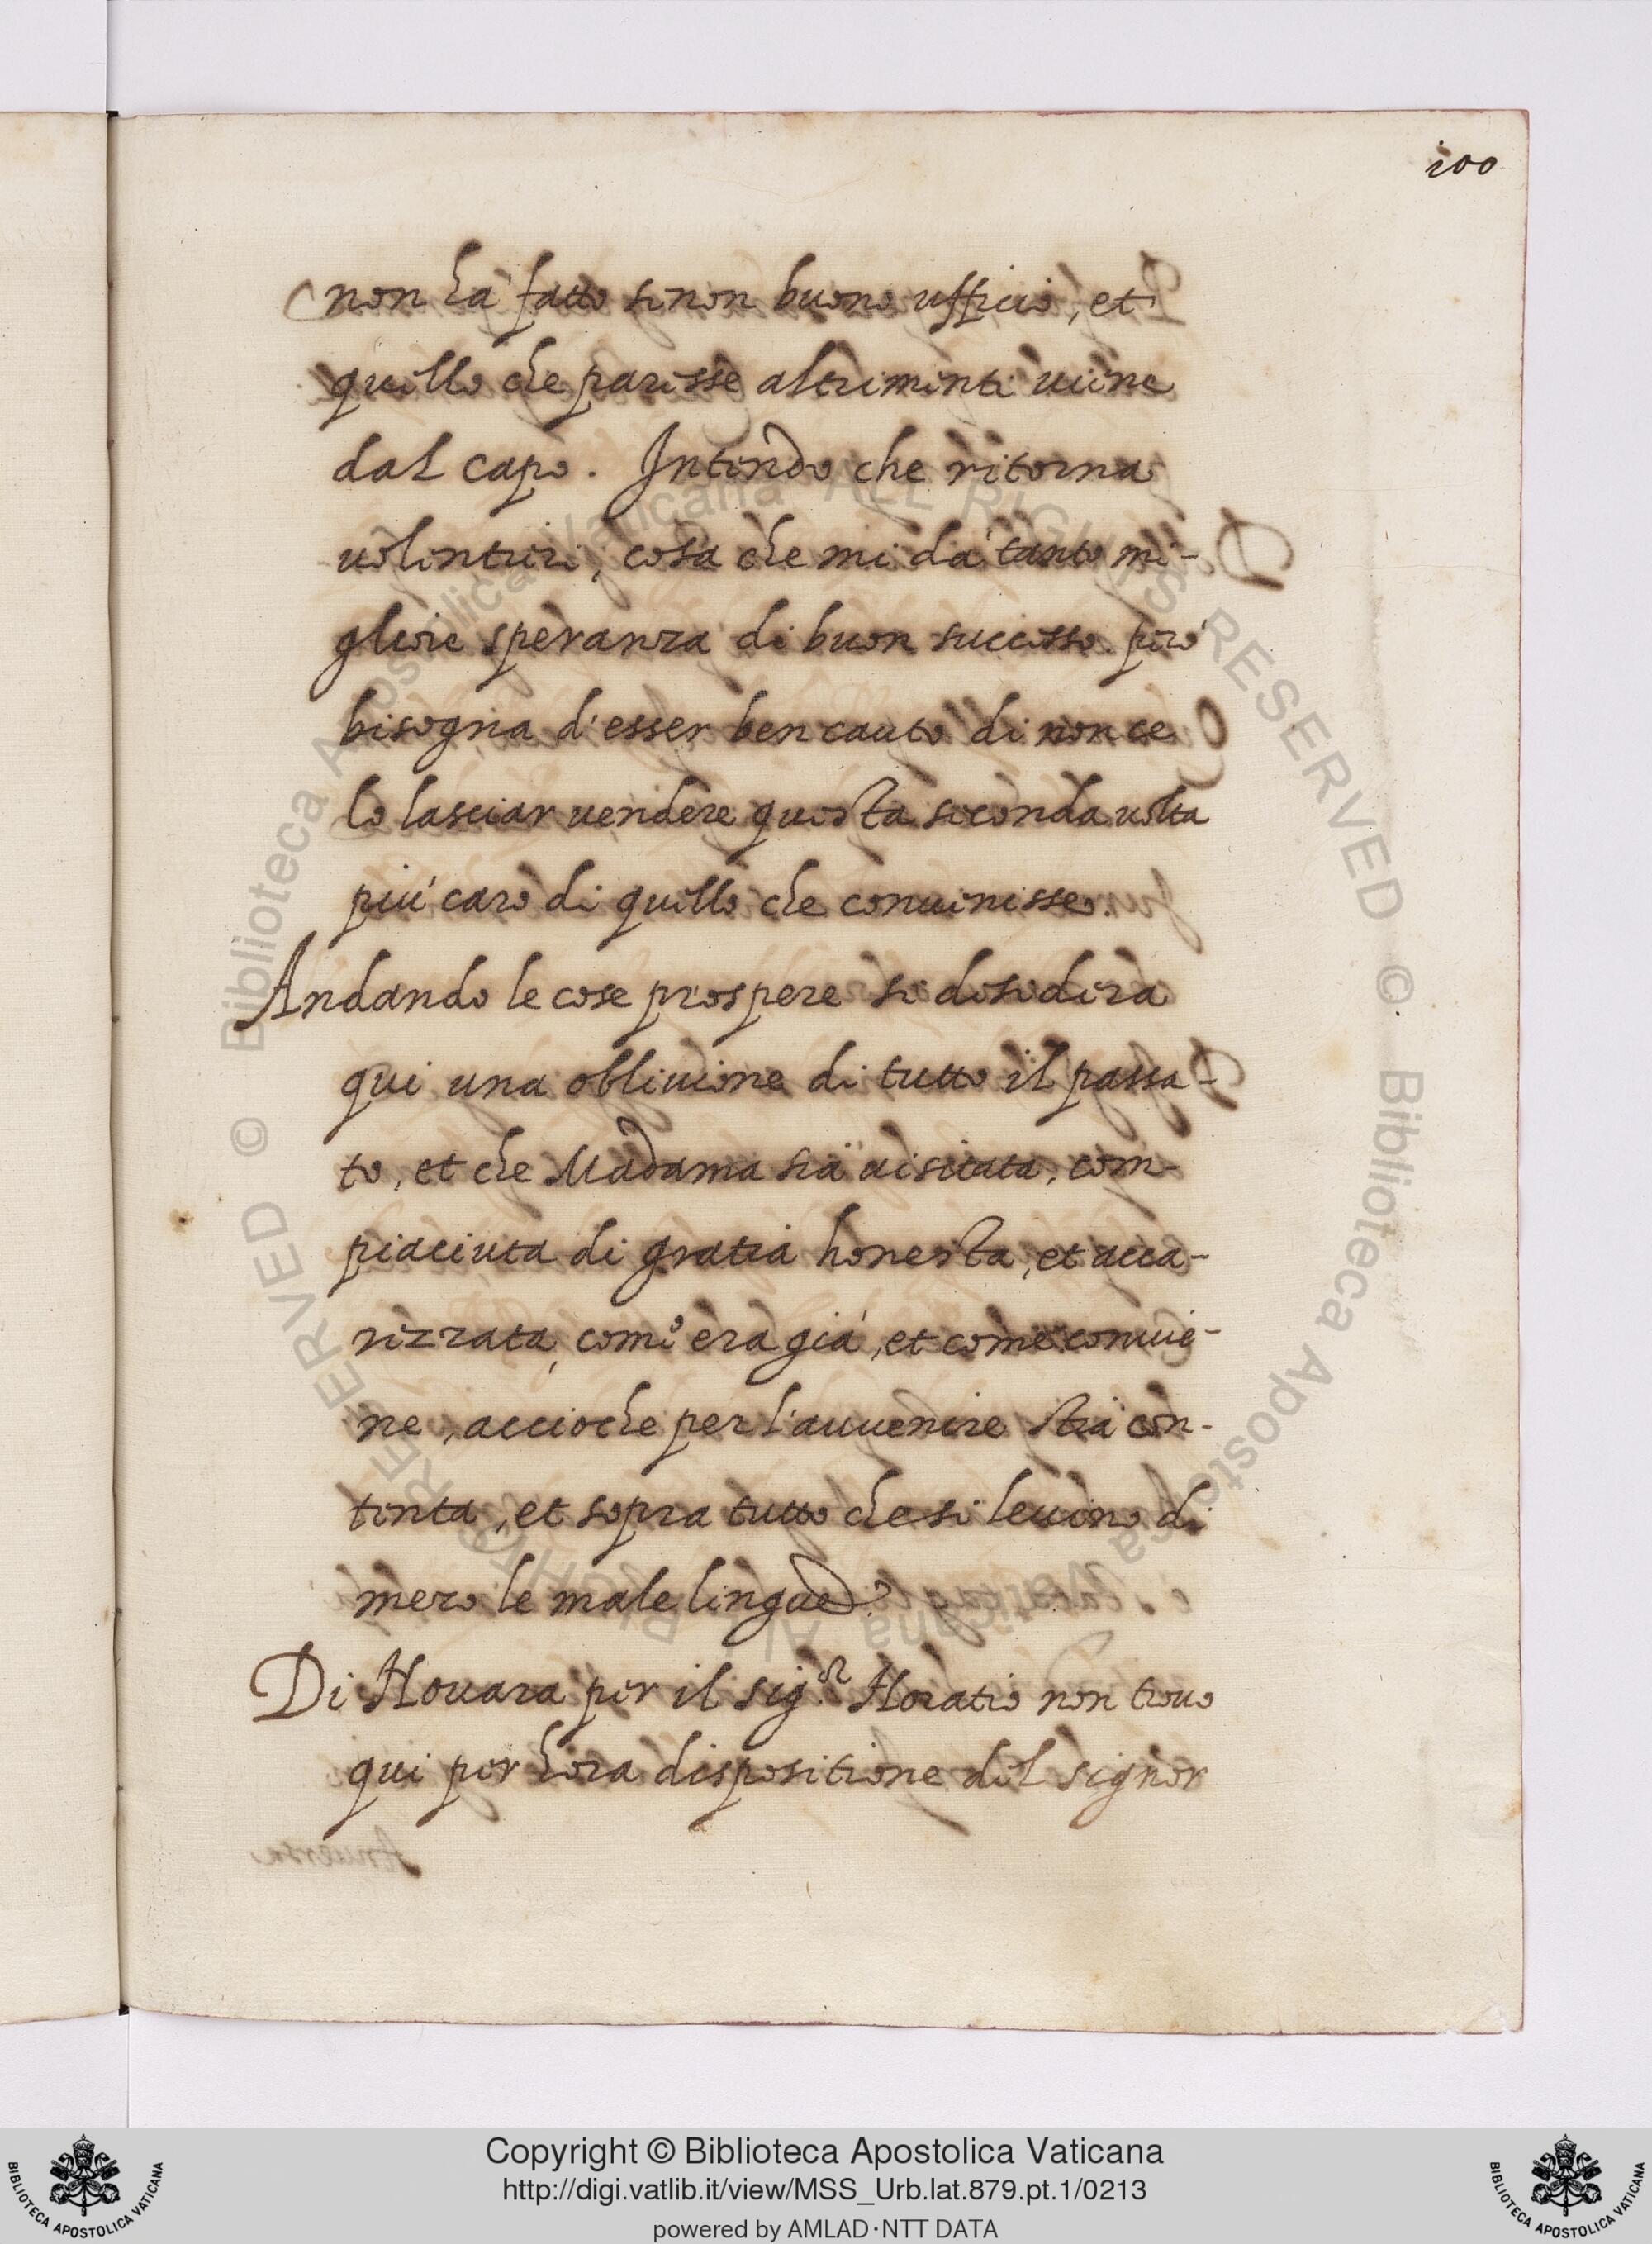 100
non ha' fatto se non buono ufficio, et
quello che paresse altrimenti uiene
dal capo. Intendo che ritorna
uolentieri, cosa che mi da' tanto mi-
gliore speranza di buon successo. però
bisogna d'esser ben cauto di non ce
lo lasciar uendere questa seconda uolta
piu' caro di quello che conuenisse.
Andando le cose prospere si desidera
qui una obliuione di tutto il passa-
to, et che Madama sia uisitata, com-
piaciuta di gratia honesta, et acca-
rezzata, com'era già, et come conuie-
ne, accioche per l'auuenire stia con-
tenta, et sopra tutto che si leuino di
mezo le male lingue.
Di Nouara per il sig.or Horatio non trouo
qui per hora dispositione del signor
Copyright © Biblioteca Apostolica Vaticana
http://digi.vatlib.it/view/MSS_Urb.lat.879.pt.1/0213
powered by AMLAD·NTT DATA
BIBLIOTECA APOSTOLICA VATICANA
BIBLIOTECA APOSTOLICA VATICANA